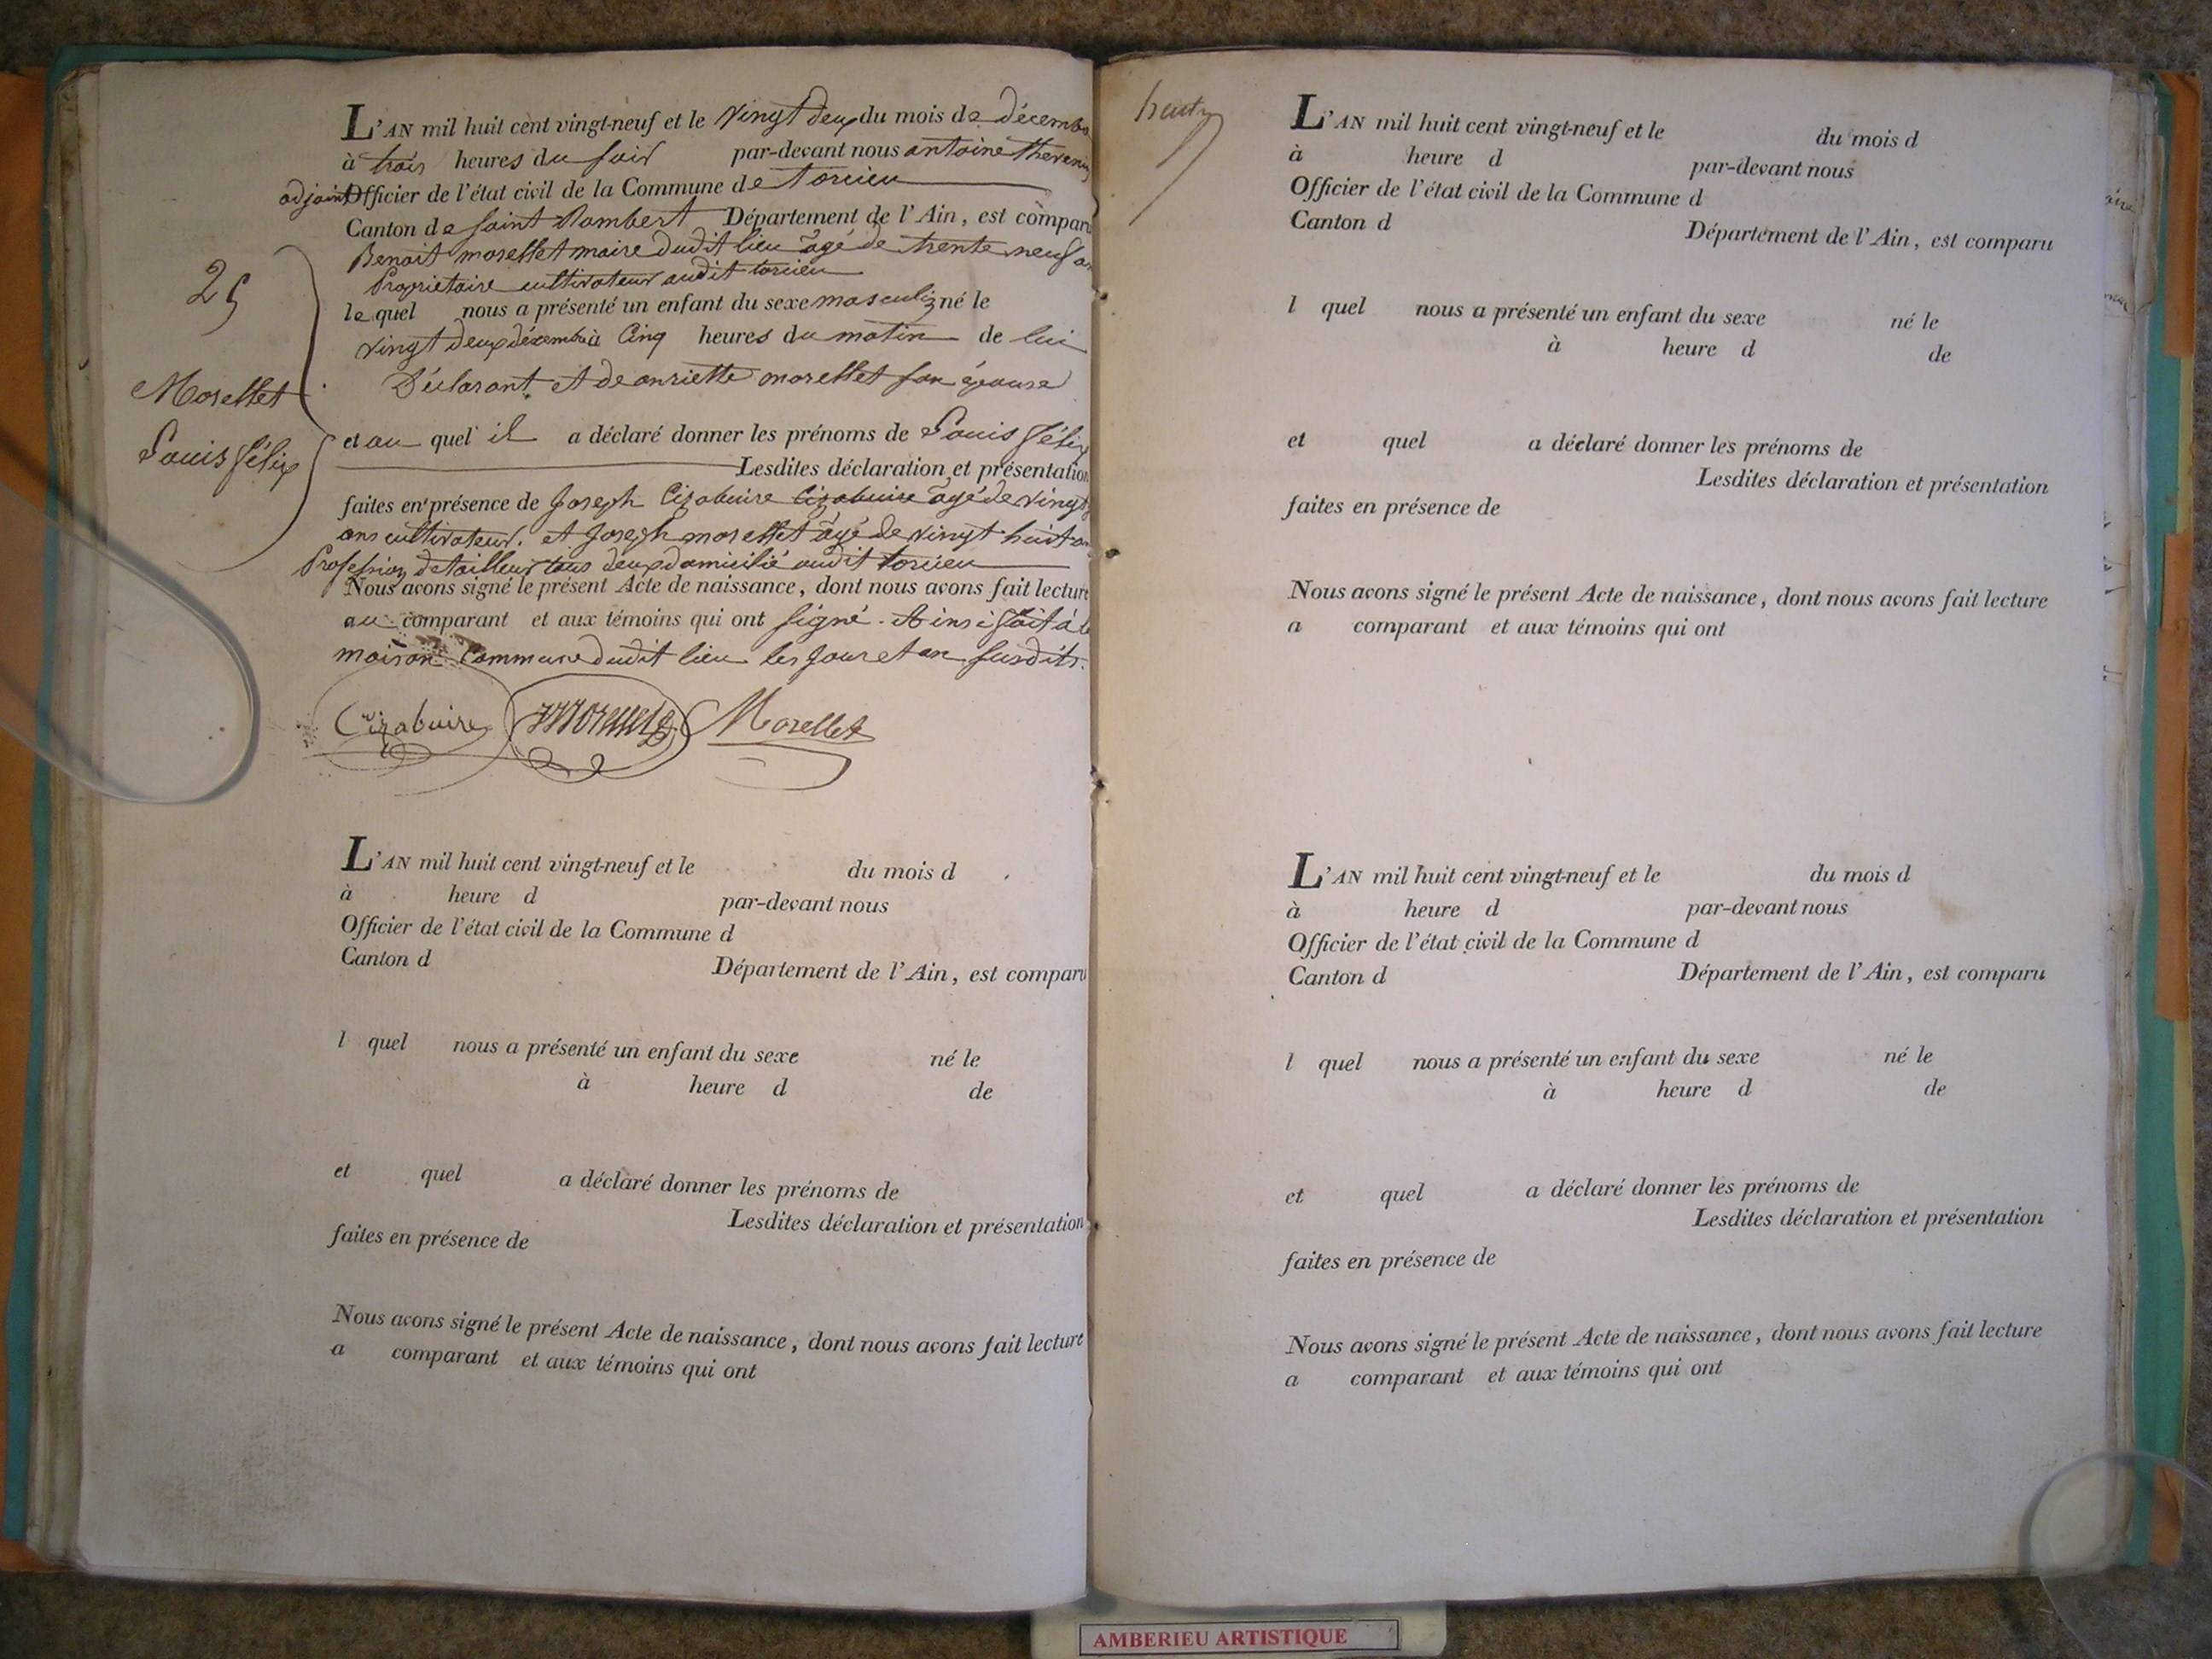 L'AN mil huit cent vingt-neuf et le vingt deux du mois de décembre
à trois heures du soir par-devant nous antoine thevenin
adjoint Officier de l'état civil de la Commune de torcieu
Canton de saint Rambert Département de l'Ain, est comparu
Benoit morellet maire dudit lieu âgé de trente neuf an
Propriétaire cultivateur audit torcieu
lequel nous a présenté un enfant du sexe masculin né le
vingt deux décembre à Cinq heures du matin de lui
Déclarant et de anriette morellet son épouse
et au quel il a déclaré donner les prénoms de Louis félix
Lesdites déclaration et présentation
faites en présence de Joseph Cizabuire cizabuire âgé de vingt
ans cultivateur. et Joseph morellet âgé de vingt huit an
Profession de tailleur tous deux domicilié audit torcieu
Nous avons signé le présent Acte de naissance, dont nous avons fait lecture
au comparant et aux témoins qui ont signé. Ainsi fait à la
maison Commune dudit lieu les jour et an susdits.
Cizabuire Morellet
25
Morellet
Louis félix
L'AN mil huit cent vingt-neuf et le du mois d
à heure d par-devant nous
Officier de l'état civil de la Commune d
Canton d Département de l'Ain, est comparu
l quel nous a présenté un enfant du sexe né le
à heure d de
et quel a déclaré donner les prénoms de
Lesdites déclaration et présentation
faites en présence de
Nous avons signé le présent Acte de naissance, dont nous avons fait lecture
a comparant et aux témoins qui ont
L'AN mil huit cent vingt-neuf et le du mois d
à heure d par-devant nous
Officier de l'état civil de la Commune d
Canton d Département de l'Ain, est comparu
l quel nous a présenté un enfant du sexe né le
à heure d de
et quel a déclaré donner les prénoms de
Lesdites déclaration et présentation
faites en présence de
Nous avons signé le présent Acte de naissance, dont nous avons fait lecture
a comparant et aux témoins qui ont
L'AN mil huit cent vingt-neuf et le du mois d
à heure d par-devant nous
Officier de l'état civil de la Commune d
Canton d Département de l'Ain, est comparu
l quel nous a présenté un enfant du sexe né le
à heure d de
et quel a déclaré donner les prénoms de
Lesdites déclaration et présentation
faites en présence de
Nous avons signé le présent Acte de naissance, dont nous avons fait lecture
a comparant et aux témoins qui ont
AMBERIEU ARTISTIQUE